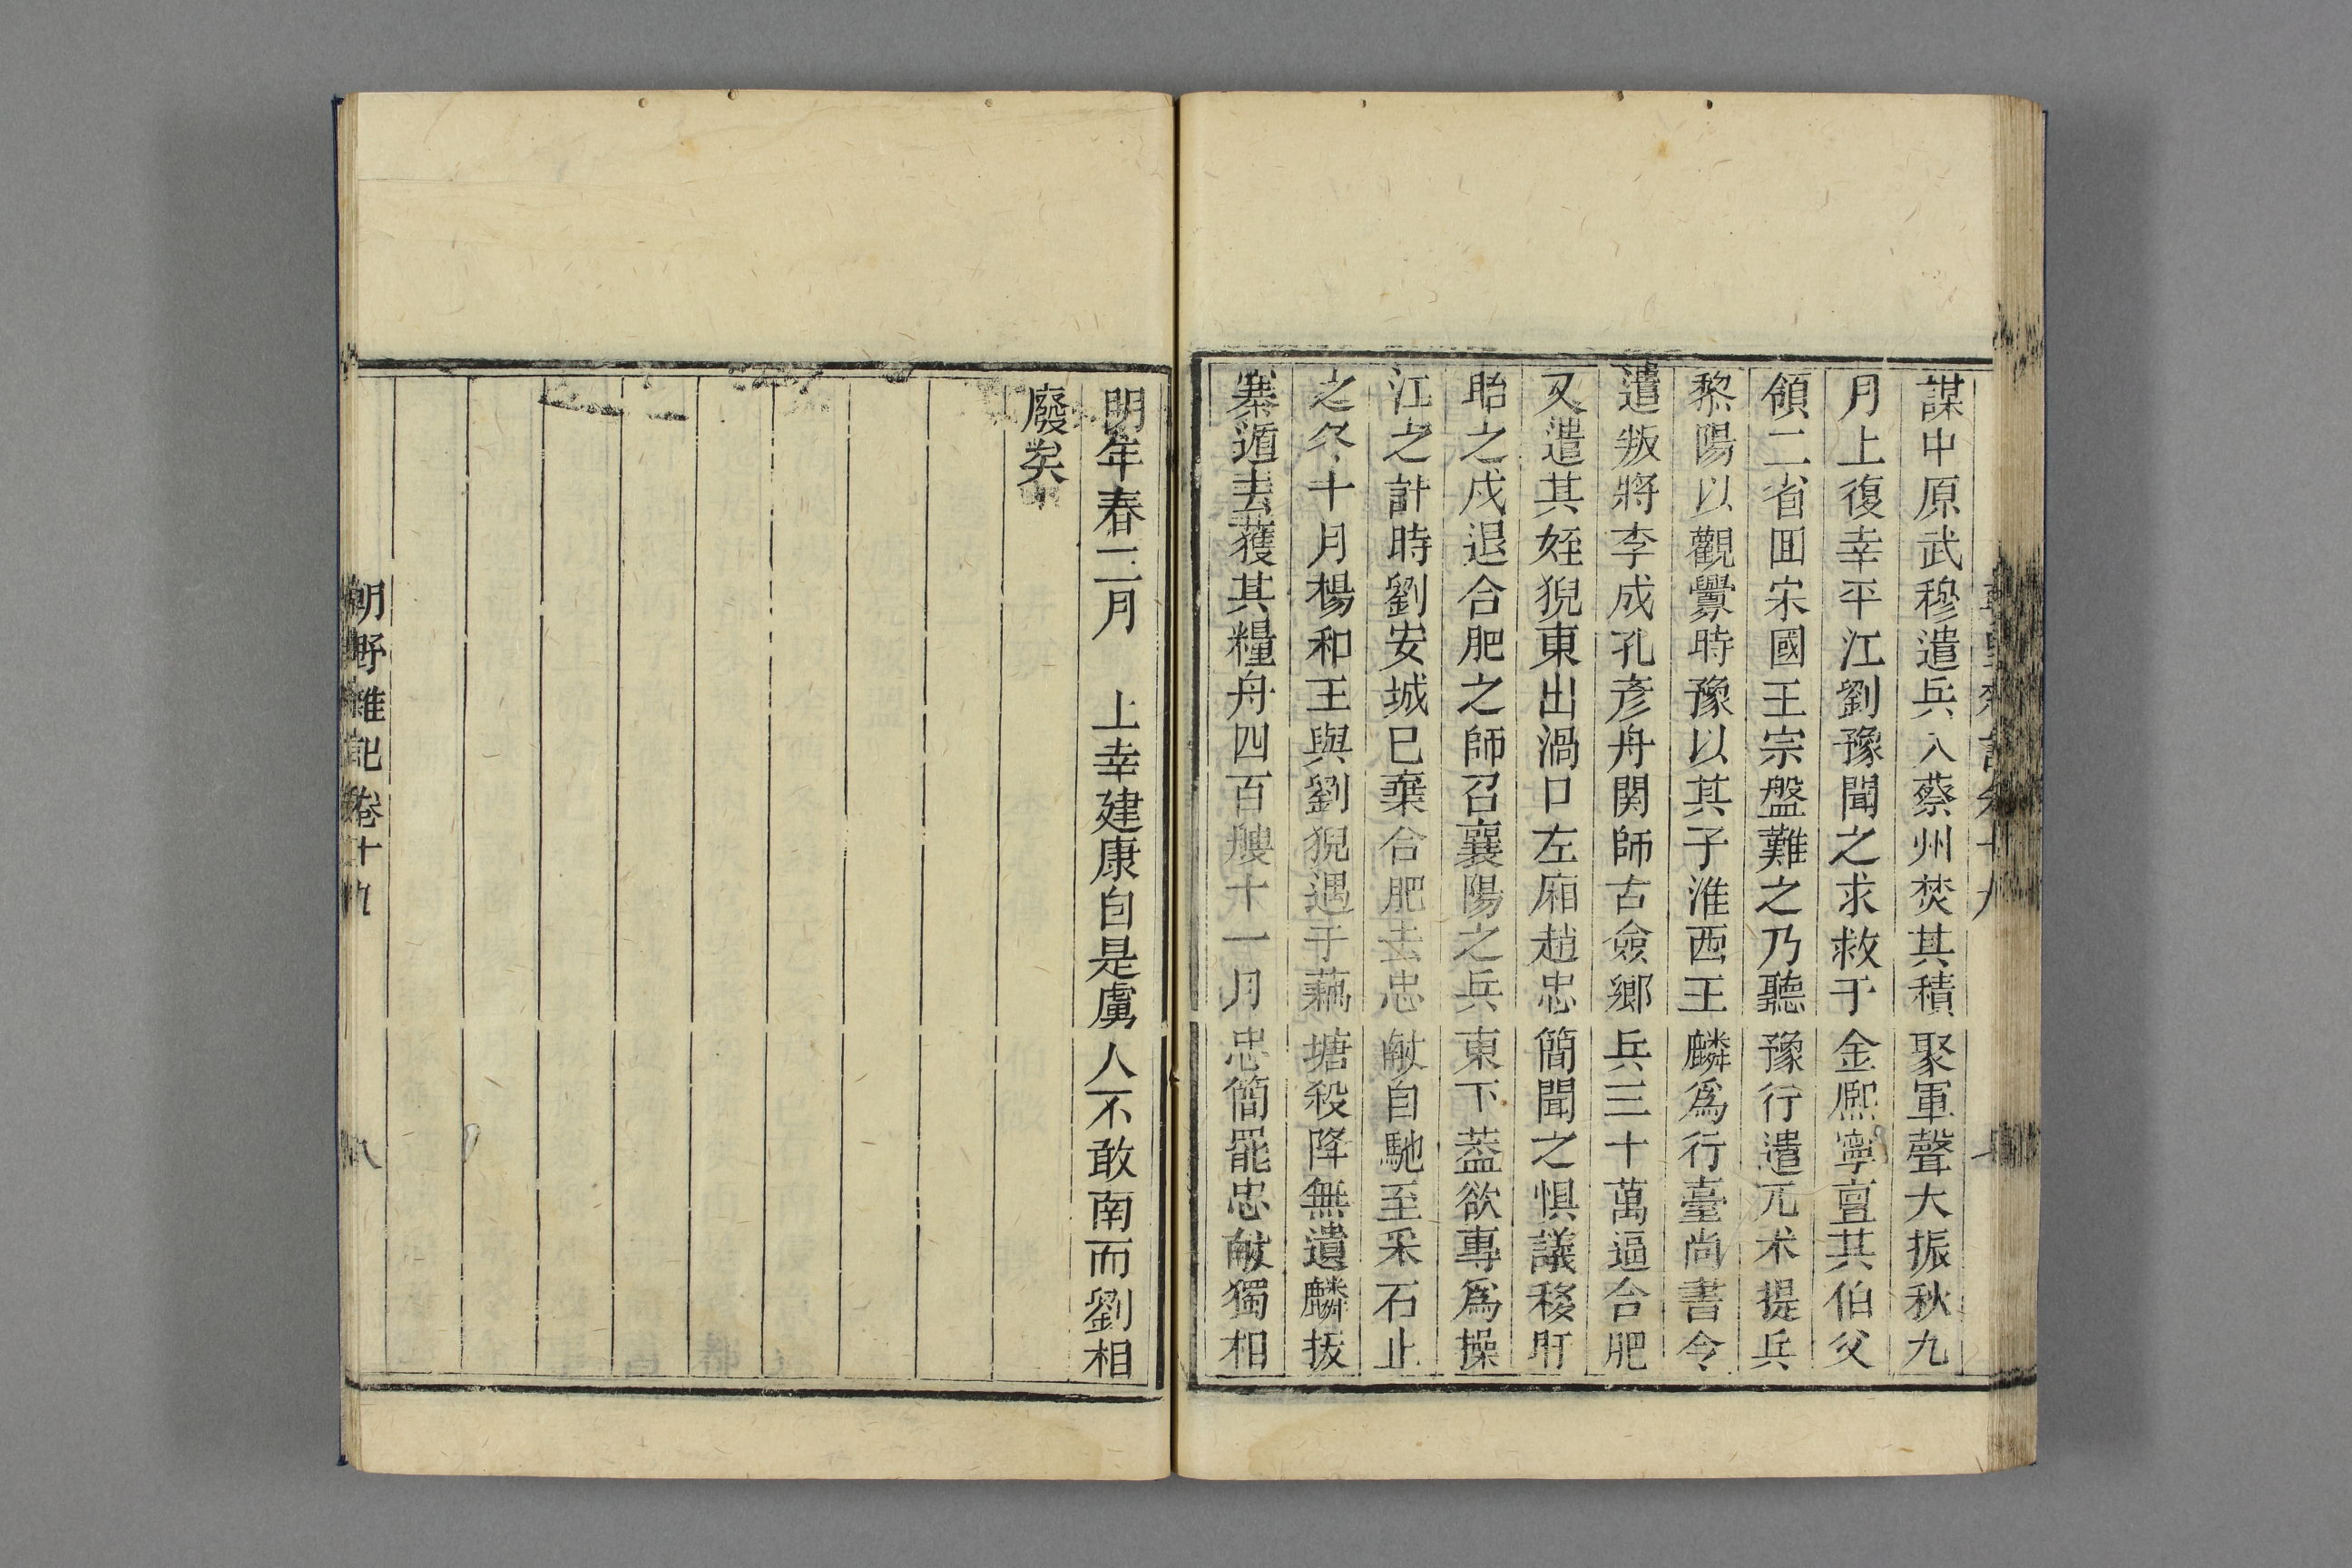 謀中原武穆遣兵入蔡州焚其積聚軍聲大振秋九
月上復幸平江劉豫聞之求救于金熈寧亶其伯父
領二省囬宋國王宗盤難之乃聽豫行遣兀术提兵
黎陽以觀釁時豫以其子淮西王麟爲行臺尚書令
遣叛將李成孔彦舟関師古僉鄉兵三十萬逼合肥
又遣其姪猊東出渦口左廂趙忠簡聞之懼議移肝
眙之戍退合肥之師召襄陽之兵東下葢欲專爲操
江之計時劉安城巳棄合肥去忠獻自馳至采石止
之冬十月楊和王與劉猊遇于藕塘殺降無遺麟拔
寨遁去獲其糧舟四百艘十一月忠簡罷忠獻獨相
明年春二月 上幸建康自是虜人不敢南而劉相
廢矣
朝野雜記卷十九
八